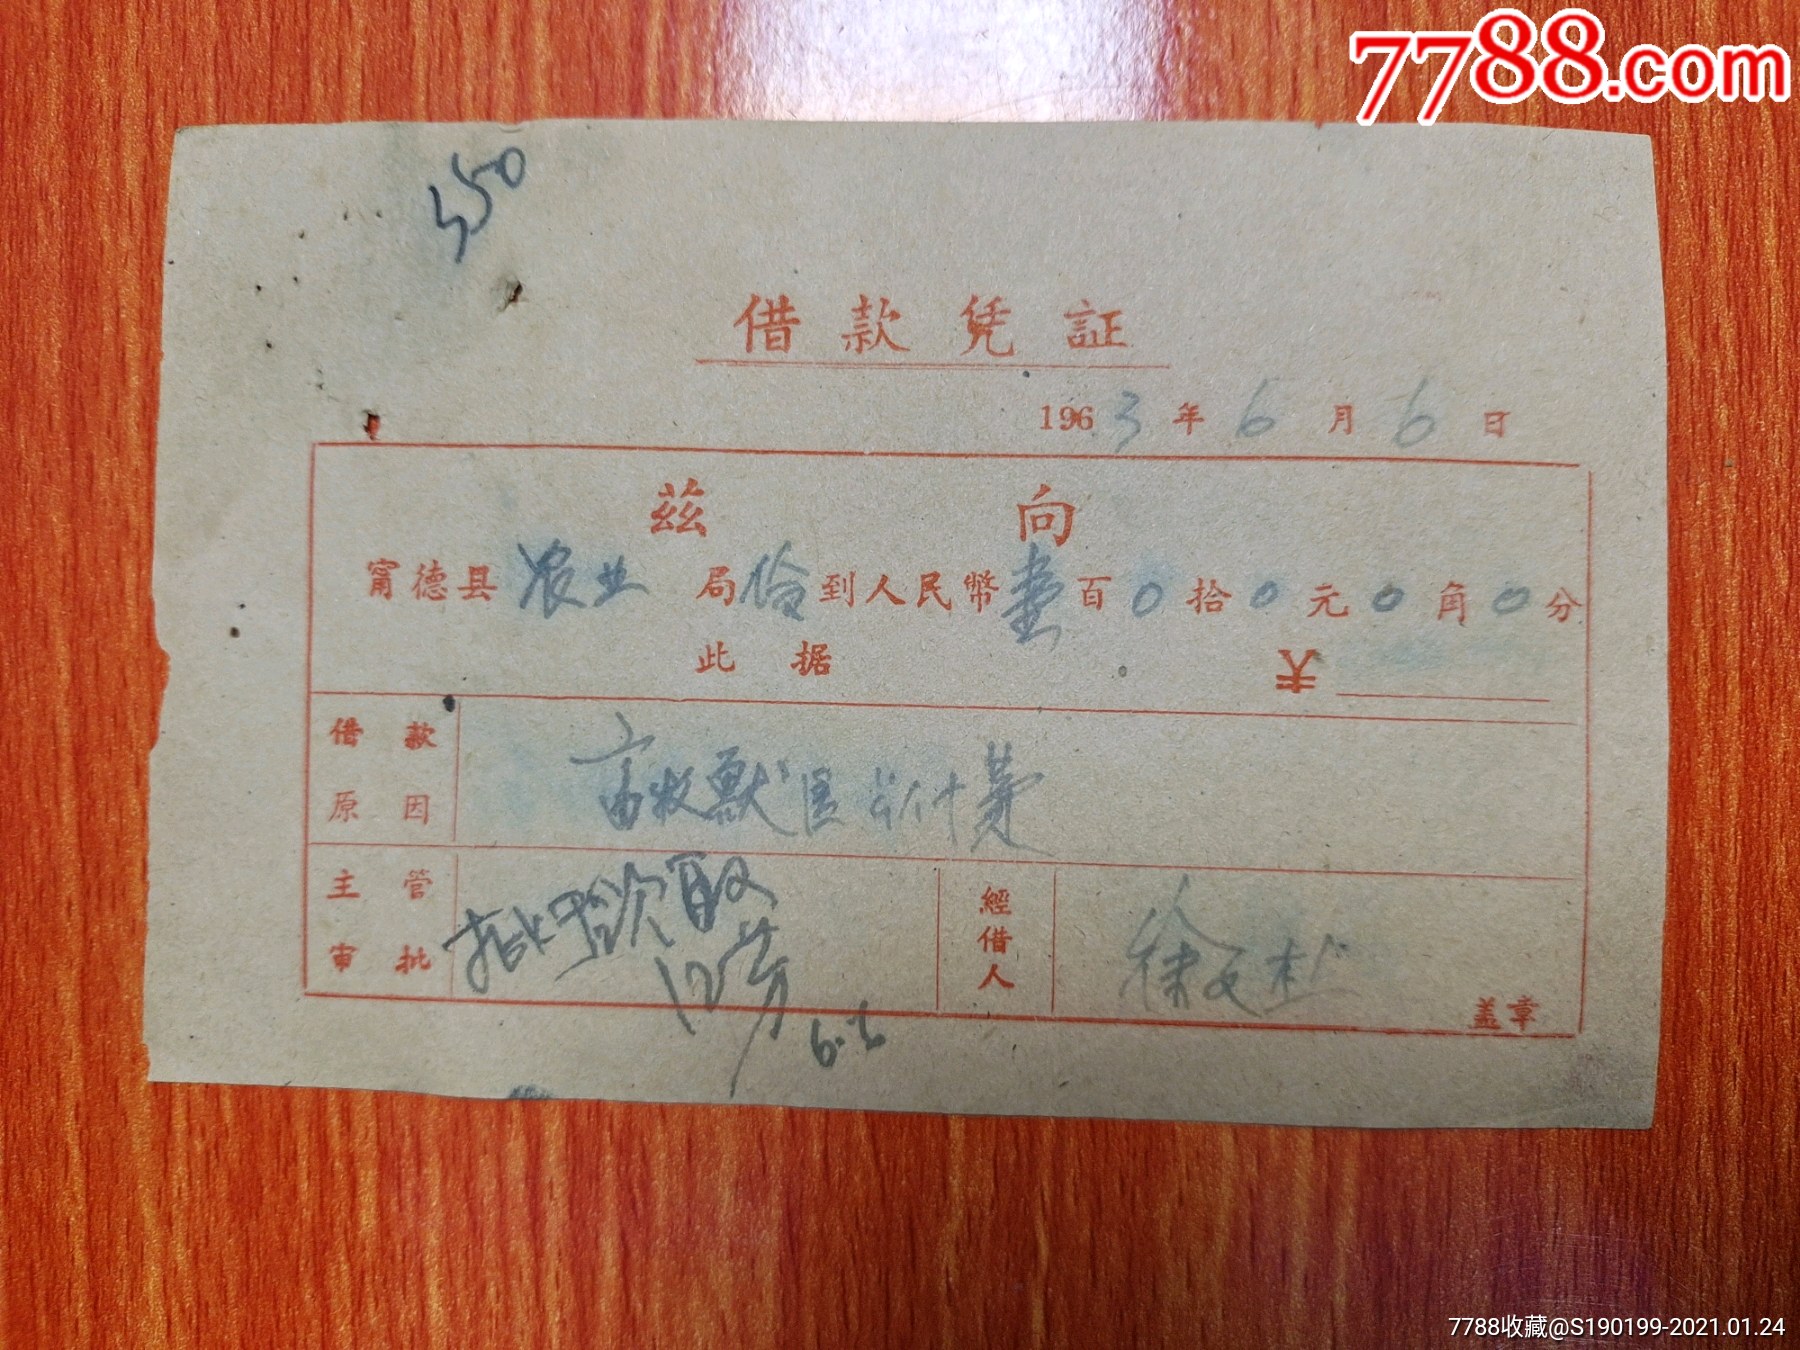 7788.com
350
借款凭証
1963年6月6日
茲向
甯德县农业局伶到人民幣壹百0拾0元0角0分
此据 ¥
借款原因 畜牧獸医
主管审批
6.5
経借人 徐
盖章
7788收藏@S190199-2021.01.24